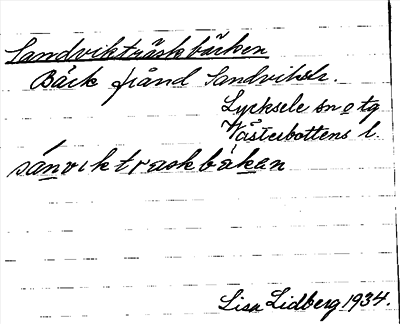 Sandvikträskbäcken
Bäck från Sandviksk.
Lycksele sn o tg
Västerbottens l.
sánviktraskbäkan
Lisa Lidberg 1934.